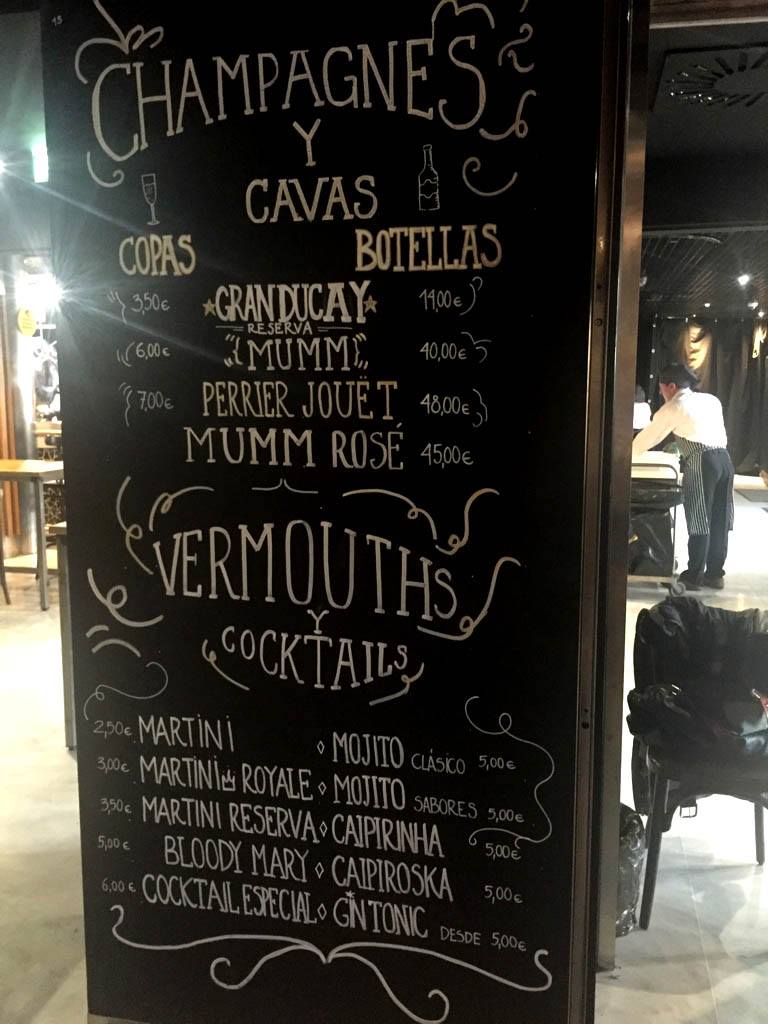 15
CHAMPAGNES
Y
CAVAS
COPAS BOTELLAS
3,50€ GRAN DUCAY 14,00€
RESERVA
6,00€ MUMM 40,00€
7,00€ PERRIER JOUËT 48,00€
MUMM ROSÉ 45,00€
VERMOUTHS
Y
COCKTAILS
2,50€ MARTINI ◊ MOJITO CLÁSICO 5,00€
3,00€ MARTINI ROYALE ◊ MOJITO SABORES 5,00€
3,50€ MARTINI RESERVA ◊ CAIPIRINHA 5,00€
5,00€ BLOODY MARY ◊ CAIPIROSKA 5,00€
6,00€ COCKTAIL ESPECIAL ◊ GINTONIC DESDE 5,00€